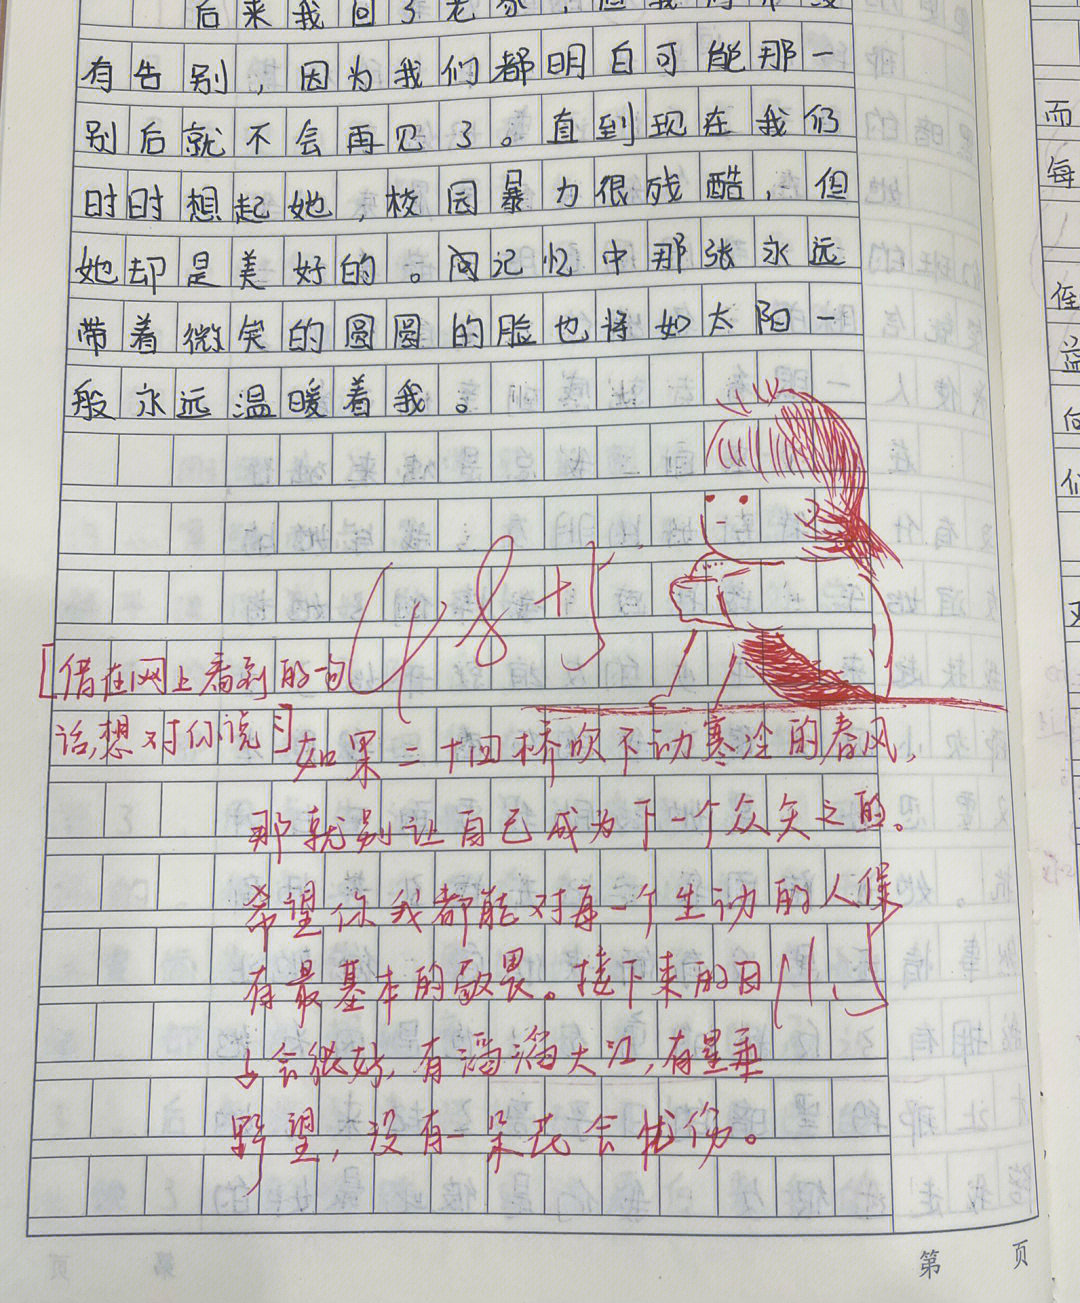 后来我回了老家，但我们都没
有告别，因为我们都明白可能那一
别后就不会再见了。直到现在我仍
时时想起她，校园暴力很残酷，但
她却是美好的。闷记忆中那张永远
带着微笑的圆圆的脸也将如太阳一
般永远温暖着我。
48+5
[借在网上看到的一句
话，想对你说：]
如果二十四桥吹不动寒冷的春风，
那就别让自己成为下一个众矢之的。
希望你我都能对每一个生动的人保
有最基本的敬畏。接下来的日
子会很好，有滔滔大江，有星垂
野望，没有一朵花会忧伤。
第 页
而
每